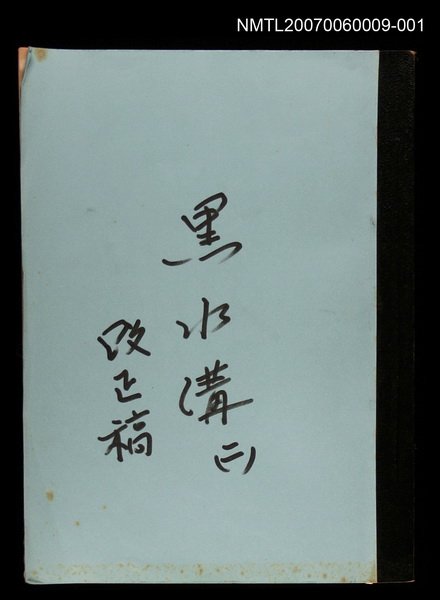 NMTL20070060009-001
黑水溝(二)
改正稿